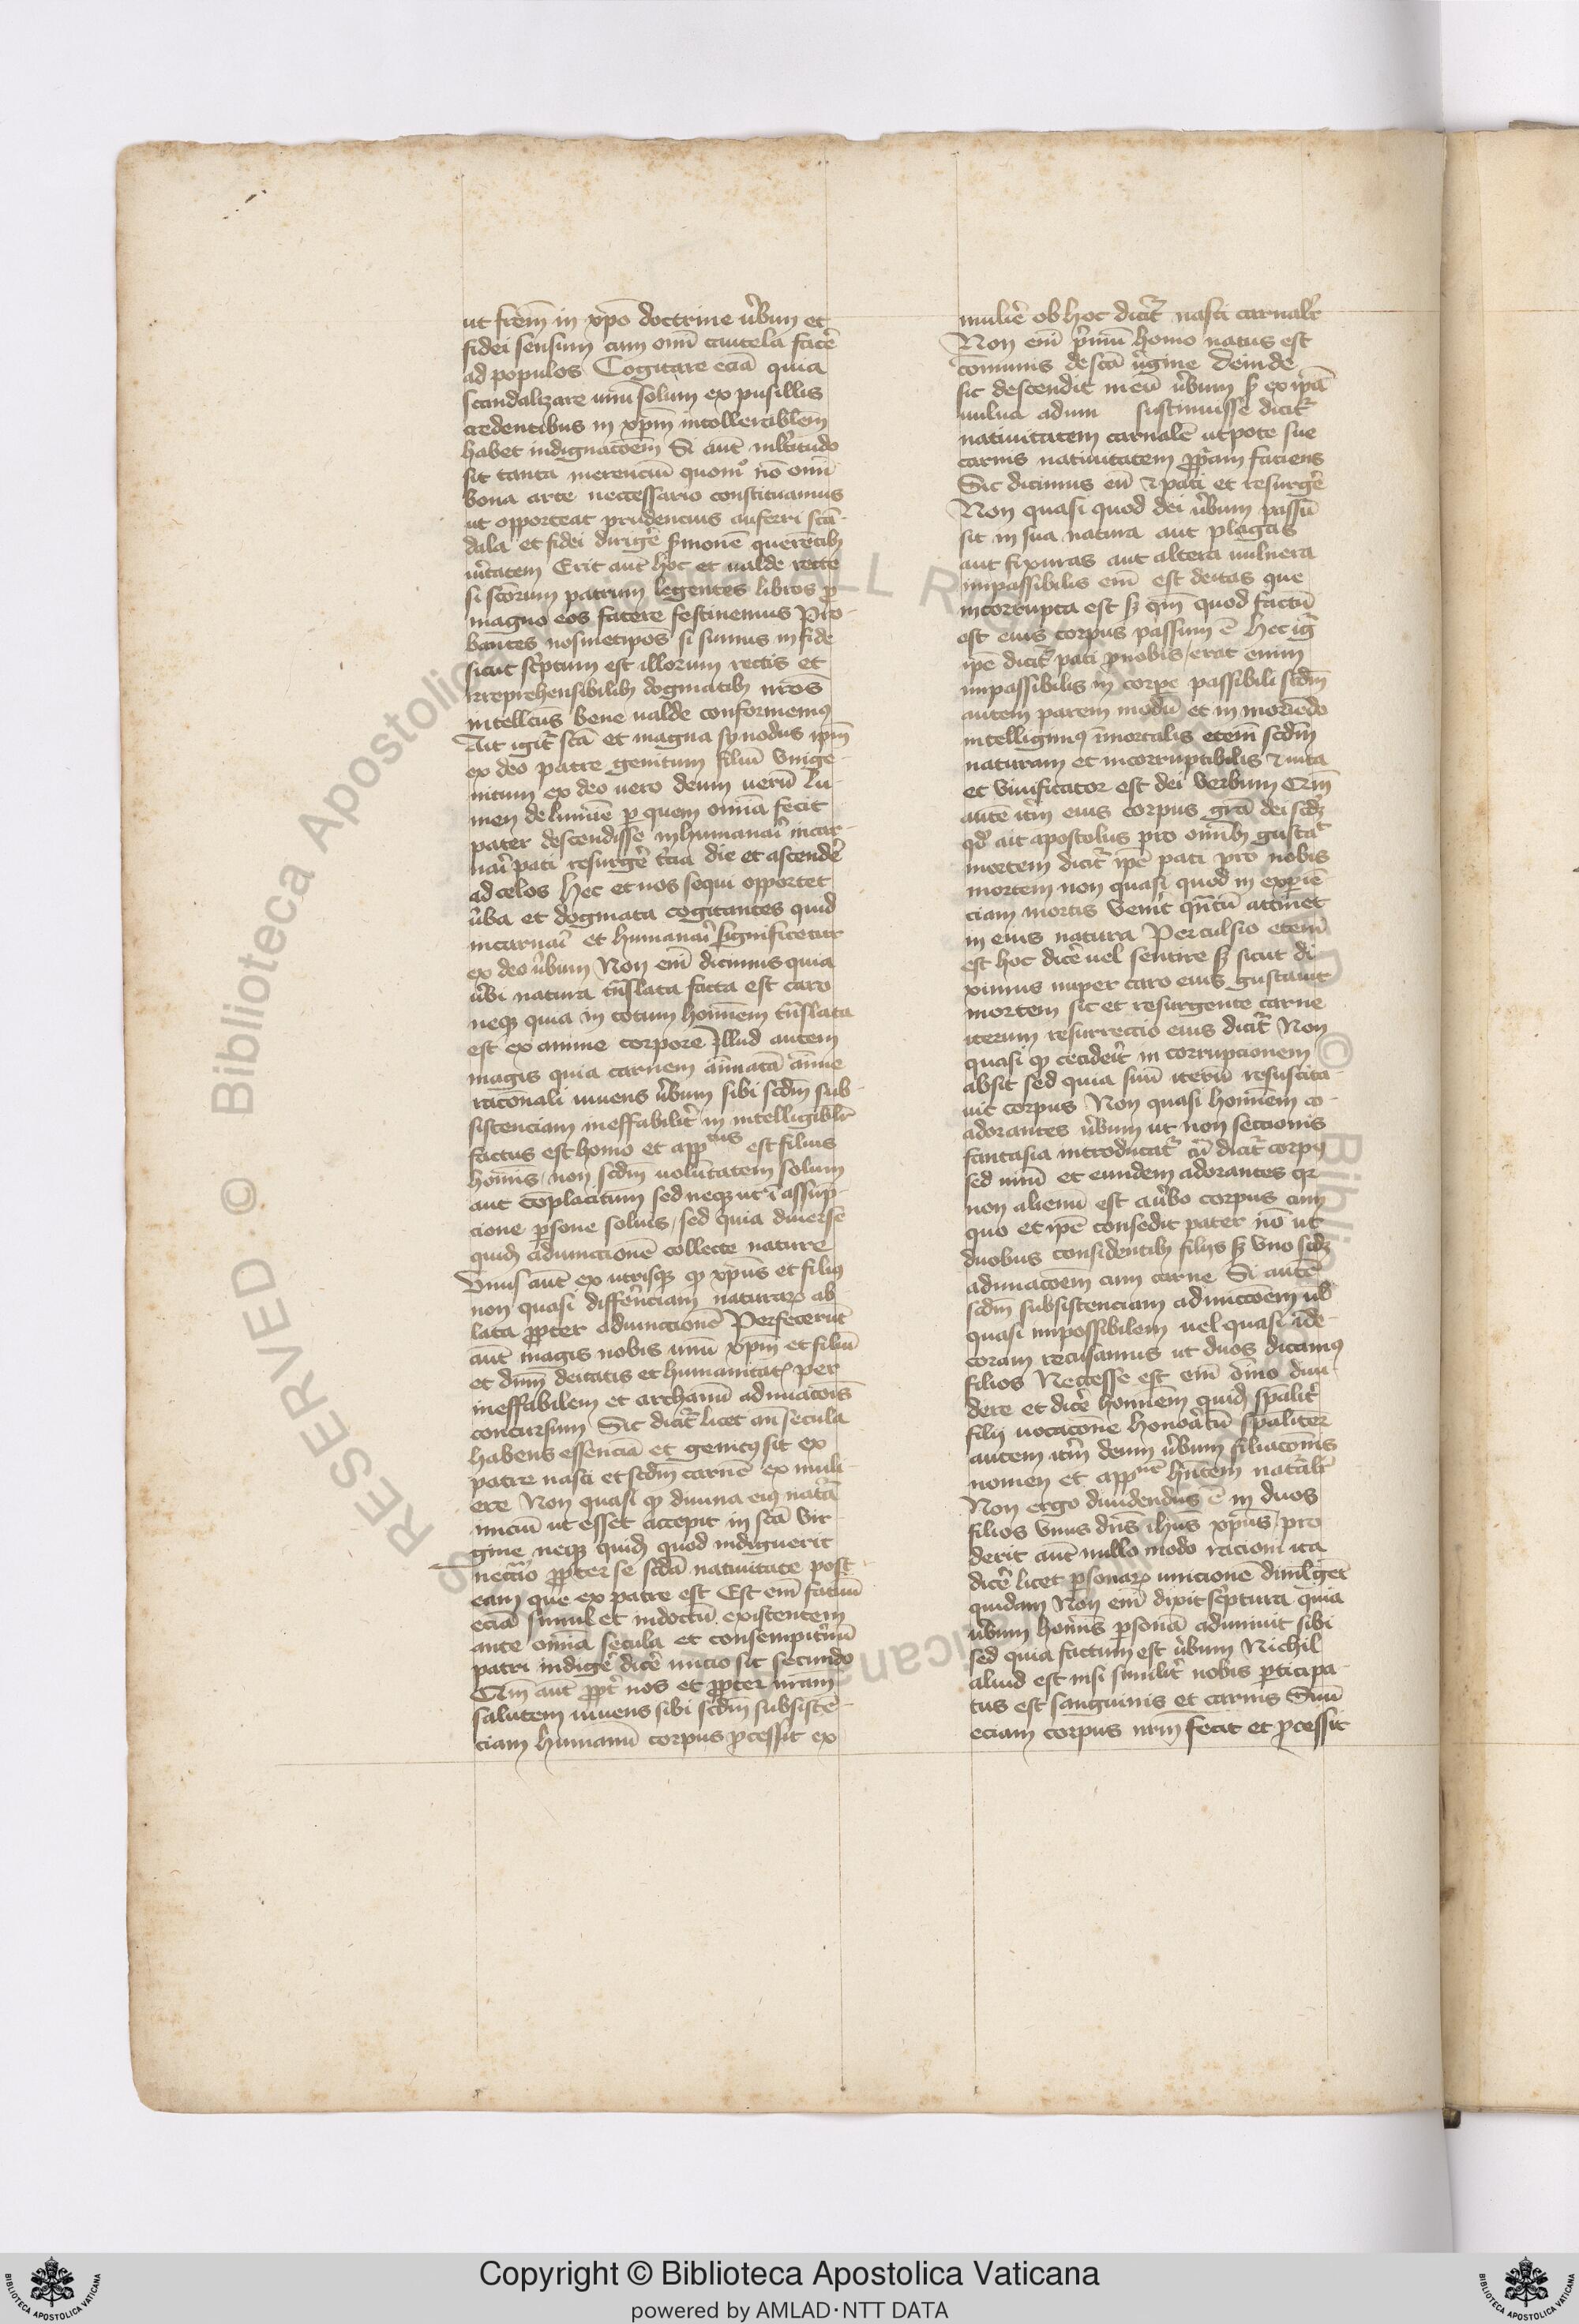 ut frēm in xp̄o doctrine v̓bum et
fidei sensum cum omī cautela facē
ad populos Cogitare eciā quia
scandalizare unū solum ex pusillis
credentibus in xp̄m intollerabilem
habet indignacōem Si aut̄ mltitudo
sit tanta merenciū quomº nō omī
bona arte neccessario constituamus
ut opporteat prudencius auferri scā-
dala et fidei dirigē s̓monē querētib
v̓itatem Erit aut̄ hoc et ualde recte
si sc̄orum patrum legentes libros p
magno eos facere festinemus Pro-
bantes nosmetip̄os si sumus in fide
sicut sc̓ptum est illorum rectis et
irreprehensibilib dogmatib nr̄os
intellcūs bene ualde conformemꝰ
Ait igit̄ sc̄a et magna synodus ip̄m
ex deo patre genitum filiū vnige-
nitum ex deo uero deum uerū lu-
men de lumīe p quem omīa fecit
pater descendisse inhumanar̓ incar-
nar̓ pati resurgē t̓cia die et ascendē
ad celos hec et nos sequi opportet
v̓ba et dogmata cogitantes quid
incarnar̓ et humanar̓ significetur
ex deo v̓bum Non em̄ dicimus quia
v̓bi natura tn̄slata facta est caro
neqz quia in totum homīem tn̄slata
est ex anime corpore Illud autem
magis quia carnem aīmatā aīme
racōnali vivens v̓bum sibi scd̄m sub-
sistenciam ineffabilit̓ in intelligiblr̄
factus est homo et app tus est filius
homīs, non scd̄m uolūtatem solum
aut complacitum sed neqz ut ī assūp-
cione psone solius, sed quia diverse
quidꝫ adunctionē collecte nature
Unus aut̄ ex utrisqꝫ qꝫ xp̄us et filiꝰ
non quasi diffēnciam naturaꝝ ab-
lata ppter adunctionē Perfecerūt
aut̄ magis nobis unū xp̄m et filiū
et dn̄m deitatis et humanitatꝭ per
ineffabilem et archanū adunacōis
concursum Sic dicit̄ licet an̄ secula
habens essenciā et genitꝰ sit ex
patre nasci et scd̄m carnē ex muli-
ere Non quasi qꝫ divina eiꝰ nat̓a
iniciū ut esset accepit in sc̄a vir-
gine neqꝫ quidꝫ quod indiguerit
necc̓io ppter se scd̄a nativitate post
eam que ex patre est Est em̄ fatuū
eciā simul et indoctū existentem
ante omīa secula et consempit̓nū
patri indigē dicē inicio sit secundo
Qm̄ aut̄ ppt̓ nos et ppter nr̄am
salutem vivens sibi scd̄m subsistē-
ciam humanū corpus pcessit ex
muliē ob hoc dicit̄ nasci carnalr̄
Non em̄ p̓mū homo natus est
cōmunis de sc̄a v̓gine deinde
sic descendit in eū v̓bum sꝫ ex ip̄a
vulva adum sustinuisse dicit̄
nativitatem carnalē utpote sue
carnis nativitatem pp̓am faciens
Sic dicimus eū ⁊ pati et resurgē
Non quasi quod dei v̓bum passū
sit in sua natura aut plagas
aut fixuras aut altera vulnera
impassibilis em̄ est deitas que
incorrupta est sꝫ qm̄ quod factū
est eius corpus passum ē hec ig̓
ip̄e dicit̄ pati pnobis, erat enim
impassibilis in corpe passibili scd̄m
autem parem modū et in moriēdo
intelligimꝰ īmortalis etem̄ scd̄m
naturam et incorruptibilis ⁊ vita
et vivificator est dei verbum Qm̄
autē it̓m eius corpus grā dei scdꝫ
qd̓ ait apostolus pro om̄ib gustat
mortem dicit̄ ip̄e pati pro nobis
mortem non quasi quod in expiē-
ciam mortis venit qn̄tū attinet
in eius natura Perculsio etem̄
est hoc dicē vel sentire sꝫ sicut di-
ximus nuper caro eius gustavit
mortem sic et resurgente carne
iterum resurrectio eius dicit̄ Non
quasi qꝫ cecidēit in corrupcionem
absit sed quia suū iterū resuscita-
vit corpus Non quasi homīem co-
adorantes v̓bum ut non sectionis
fantasia introducat̄ cū dicit̄ corpꝰ
sed unū et eundem adorantes qr
non alienū est a v̓bo corpus cum
quo et ip̄e consedit pater nō ut
duobus considentib filijs sꝫ vno scdꝫ
adunacōem cum carne Si autē
scd̄m subsistenciam adunccōem ub
quasi impossibilem vel quasi īde-
coram recusamus ut duos dicamꝰ
filios Neccesse est em̄ om̄o divi-
dere et dicē homīem quidꝫ sp̄alit̓
filij vocacōne honoātū sp̄aliter
autem it̓m deum v̓bum filiacōnis
nomen et app nē hn̄tem nat̓alr̄
Non ergo dividendus ē in duos
filios vnus dn̄s ih̄us xp̄us, pro-
derit aut̄ nullo modo racioni ita
dicē licet psonaꝝ unicionē divulgēt
quidam Non em̄ dixit sc̓ptura quia
v̓bum homīs psonā adunivit sibi
sed quia factum est v̓bum Nichil
aliud est nisi similit̓ nobis pticipa-
tus est sanguinis et carnis Suū
eciam corpus nr̄m fecit et pcessit
Copyright © Biblioteca Apostolica Vaticana
powered by AMLAD·NTT DATA